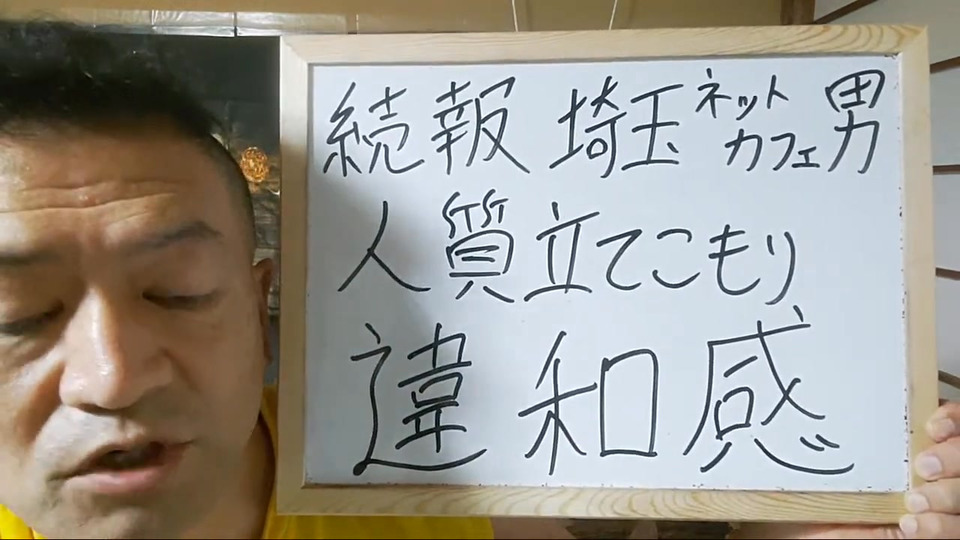 続報 埼玉ネットカフェ男
人質立てこもり
違和感